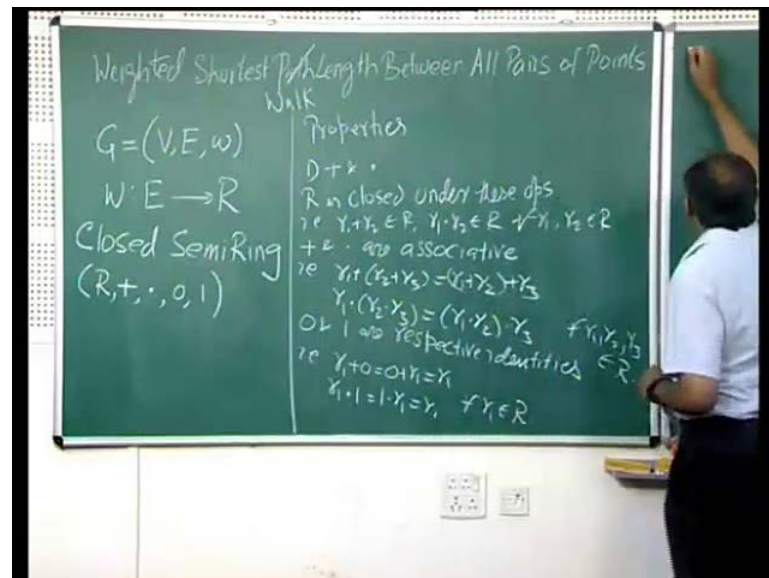 Weighted Shortest Path Length Between All Pairs of Points
Walk
G=(V,E,w)
W: E → R
Closed SemiRing
(R,+,·,0,1)
Properties
1) + & ·
R is closed under these ops
ie r₁+r₂ ∈ R, r₁·r₂ ∈ R ∀ r₁, r₂ ∈ R
+ & · are associative
ie r₁+(r₂+r₃)=(r₁+r₂)+r₃
r₁·(r₂·r₃)=(r₁·r₂)·r₃ ∀ r₁,r₂,r₃ ∈ R
0 & 1 are respective identities
ie r₁+0=0+r₁=r₁
r₁·1=1·r₁=r₁ ∀ r₁ ∈ R